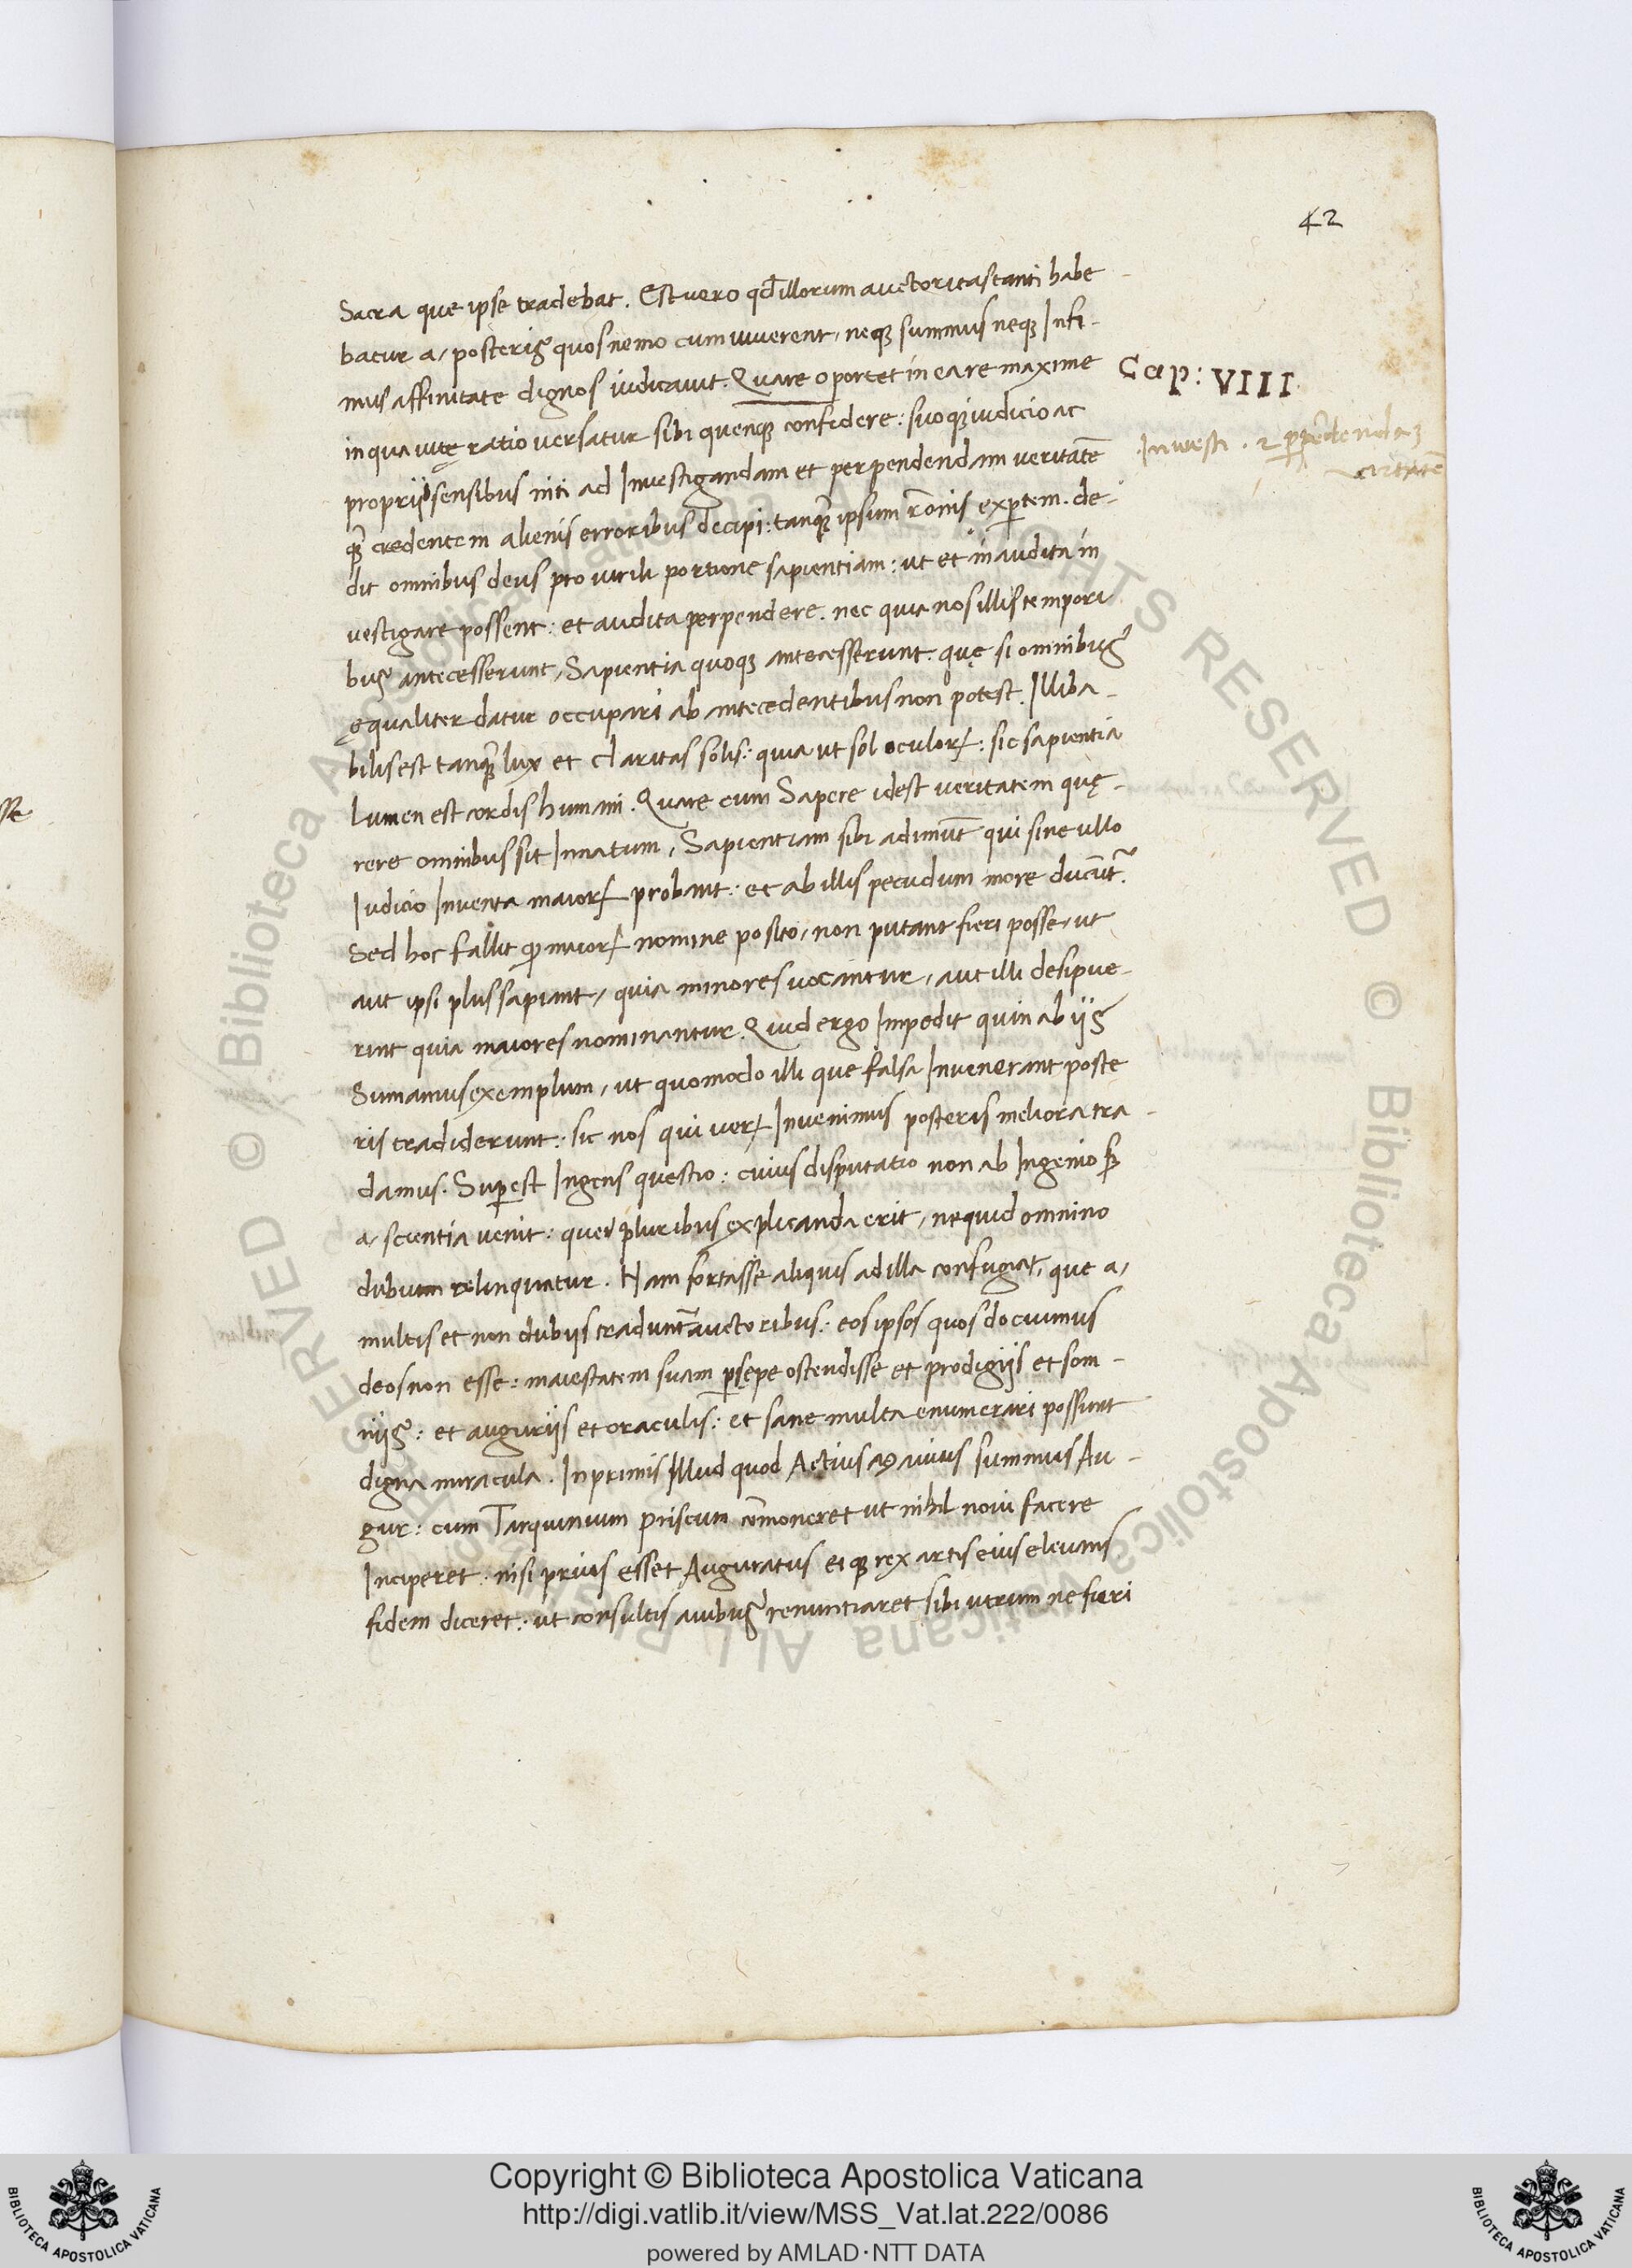 42
Sacra que ipse tradebat. Est vero qđ illorum auctoritas tanti habe-
batur a/ posteris quos nemo cum viverent, neqȝ summus neqȝ Infi-
mus affinitate dignos iudicavit. Quare oportet in ea re maxime
Cap: VIII
in qua vitę ratio versatur sibi quenqȝ confidere: suoqȝ iudicio ac
propriis sensibus niti ad Investigandam et perpendendam veritatē
Investi. perpēdendaȝ
veritatē
qȝ̄ credentem alienis erroribus decipi: tanqȝ̄ ipsum rōnis expertem. de-
dit omnibus deus pro virili portione sapientiam: ut et inaudita in
vestigare possent: et audita perpendere. nec quia nos illis tempori
bus antecesserunt, Sapientia quoqȝ antecesserunt. quę si omnibus
ęqualiter datur occupari ab antecedentibus non potest. Illiba-
bilis est tanqȝ̄ lux et claritas solis: quia ut sol oculorꝝ: sic sapientia
lumen est cordis humani. Quare cum Sapere idest veritatem quę-
rere omnibus sit Innatum, Sapientiam sibi adimūt qui sine ullo
Iudicio Inventa maiorꝝ probant: et ab illis pecudum more ducūt᷑.
Sed hoc fallit ꝙ maiorꝝ nomine posito, non putant fieri posse, ut
aut ipsi plus sapiant, quia minores vocantur, aut illi desipue-
rint quia maiores nominantur. Quid ergo Impedit quin ab ijs
Sumamus exemplum, ut quomodo illi que falsa Invenerant poste
ris tradiderunt: sic nos qui verꝝ Invenimus posteris meliora tra-
damus. Suꝑest Ingens questio: cuius disputatio non ab Ingenio sȝ
a/ scientia venit: que pluribus explicanda erit, nequid omnino
dubium relinquatur. Nam fortasse aliquis ad illa confugiat, que a/
multis et non dubijs tradunt᷑ auctoribus: eos ipsos quos docuimus
deos non esse: maiestatem suam ꝑsępe ostendisse et prodigijs et som-
nijs: et augurijs et oraculis: et sane multa enumerari possunt
digna miracula. Inprimis Illud quod Actius Navius summus Au-
gur: cum Tarquinium priscum cōmoneret ut nihil novi facere
Inciperet: nisi prius esset Auguratus eiqȝ rex artis eius elevans
fidem diceret: ut consultis avibus renuntiaret sibi utrum ne fieri
© Biblioteca Apostolica Vaticana ALL RIGHTS RESERVED
Copyright © Biblioteca Apostolica Vaticana
http://digi.vatlib.it/view/MSS_Vat.lat.222/0086
powered by AMLAD·NTT DATA
BIBLIOTECA APOSTOLICA VATICANA
BIBLIOTECA APOSTOLICA VATICANA